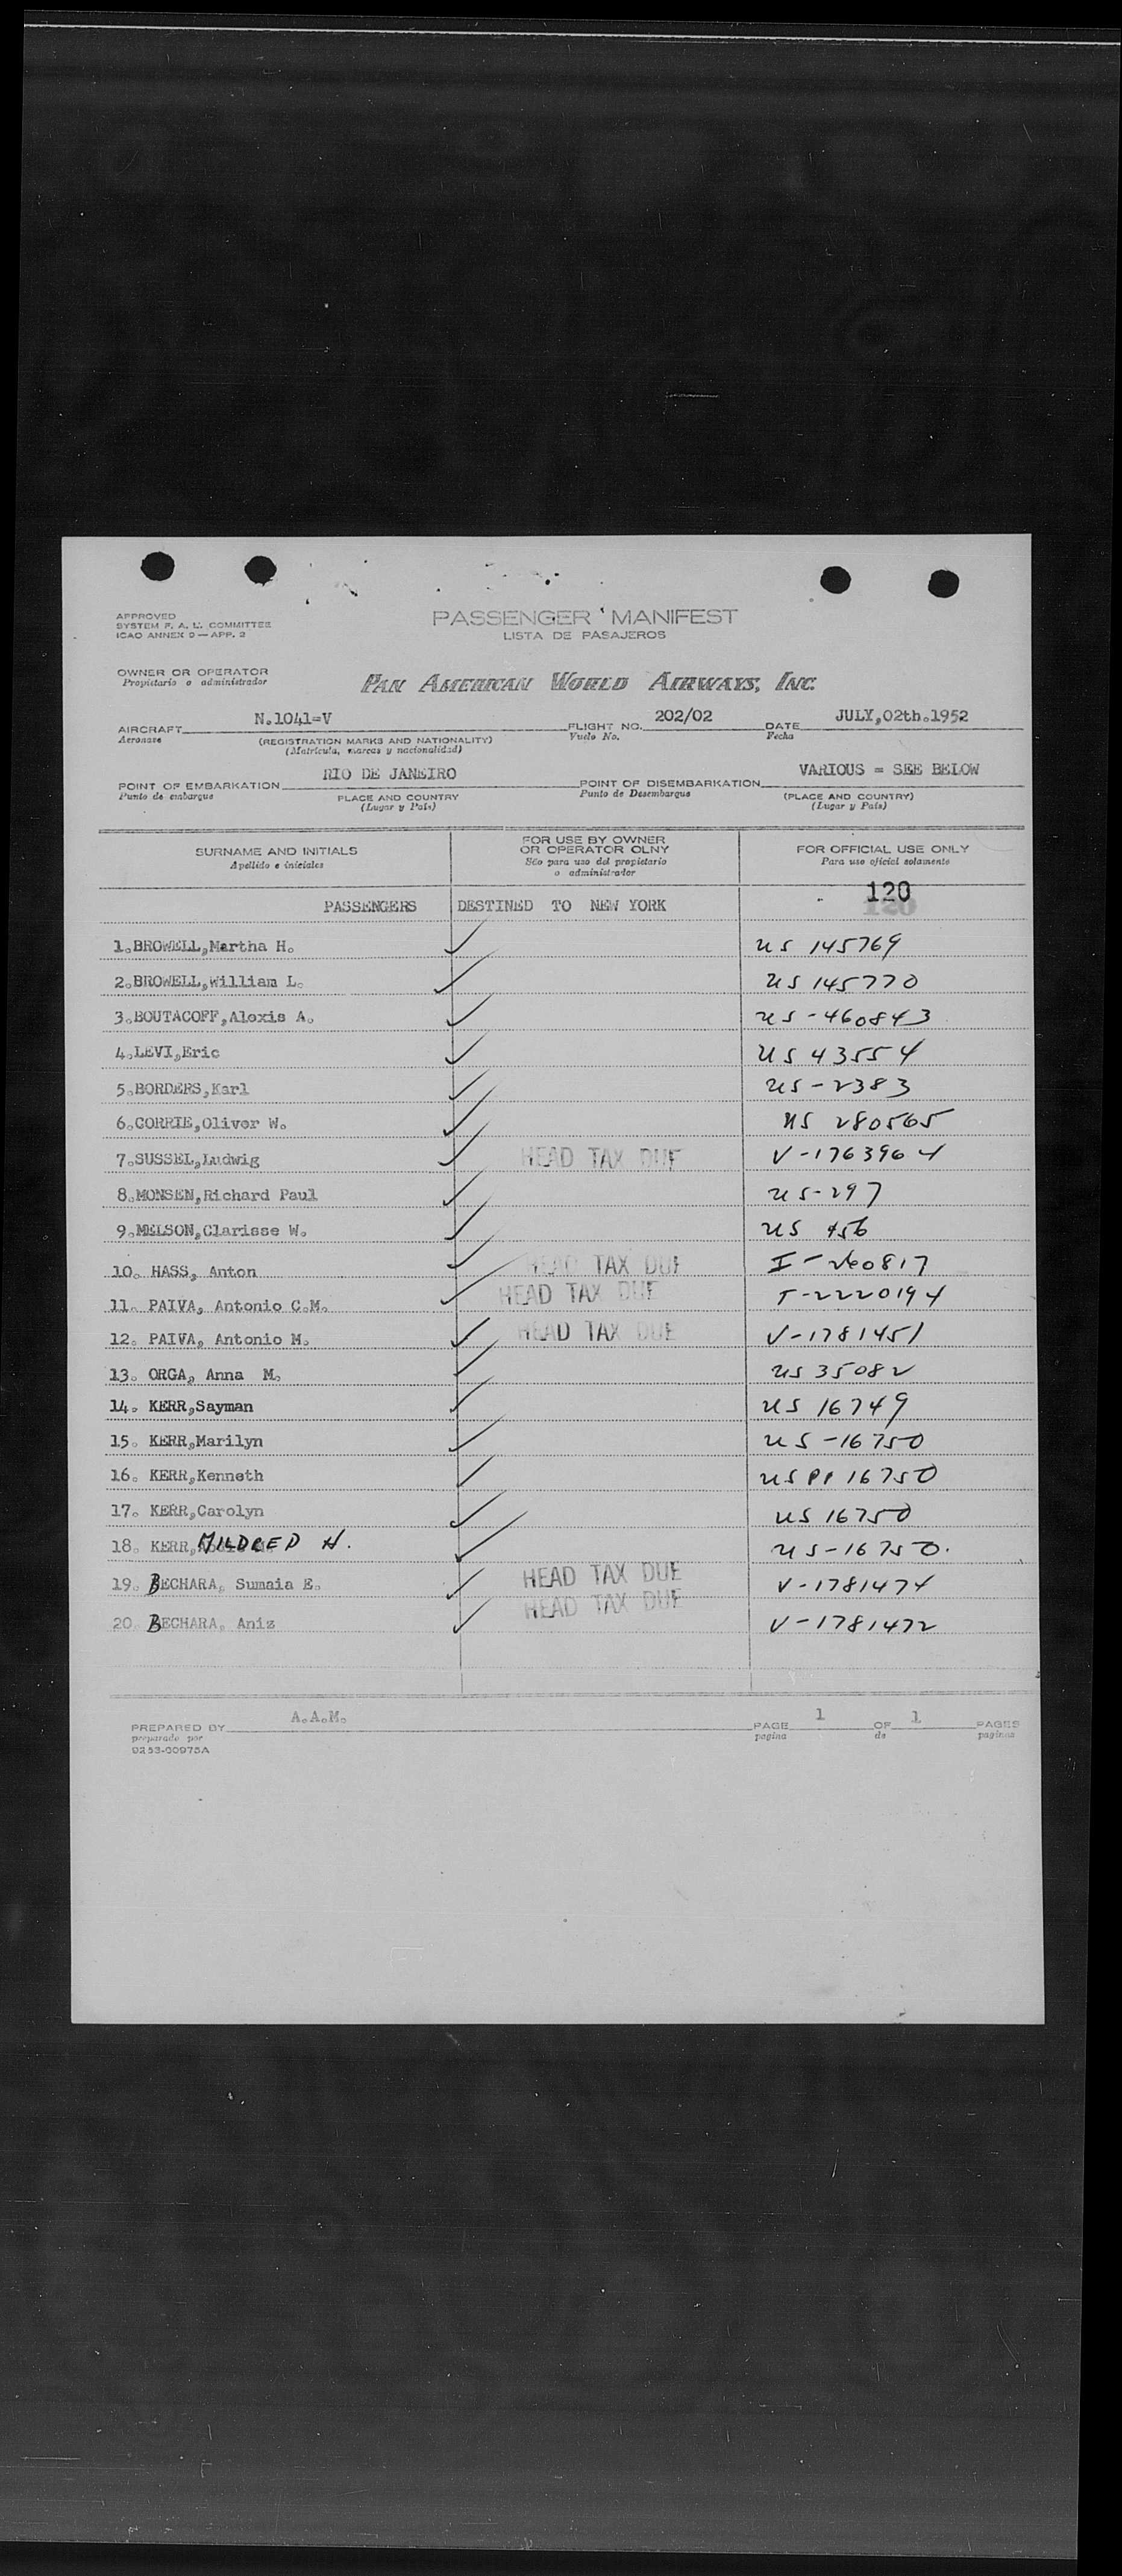 APPROVED
SYSTEM F. A. L. COMMITTEE
ICAO ANNEX 9 — APP. 2
PASSENGER MANIFEST
LISTA DE PASAJEROS
OWNER OR OPERATOR
Propietario o administrador
PAN AMERICAN WORLD AIRWAYS, INC.
AIRCRAFT N.1041=V FLIGHT NO. 202/02 DATE JULY,02th.1952
Aeronave (REGISTRATION MARKS AND NATIONALITY) Vuelo No. Fecha
(Matricula, marcas y nacionalidad)
POINT OF EMBARKATION RIO DE JANEIRO POINT OF DISEMBARKATION VARIOUS = SEE BELOW
Punto de embarque PLACE AND COUNTRY Punto de Desembarque (PLACE AND COUNTRY)
(Lugar y País) (Lugar y País)
SURNAME AND INITIALS
Apellido e iniciales
FOR USE BY OWNER
OR OPERATOR OLNY
Sólo para uso del propietario
o administrador
FOR OFFICIAL USE ONLY
Para uso oficial solamente
120
PASSENGERS DESTINED TO NEW YORK
1.BROWELL,Martha H. US 145769
2.BROWELL,William L. US 145770
3.BOUTACOFF,Alexis A. US-460843
4.LEVI,Eric US 43554
5.BORDERS,Karl US-2383
6.CORRIE,Oliver W. US 280565
7.SUSSEL,Ludwig HEAD TAX DUE V-1763964
8.MONSEN,Richard Paul US-297
9.MELSON,Clarisse W. US 456
10. HASS, Anton HEAD TAX DUE I-260817
11. PAIVA, Antonio C.M. HEAD TAX DUE T-2220194
12. PAIVA, Antonio M. HEAD TAX DUE V-1781451
13. ORGA, Anna M. US 35082
14. KERR,Sayman US 16749
15. KERR,Marilyn US-16750
16. KERR,Kenneth US PP 16750
17. KERR,Carolyn US 16750
18. KERR, MILDRED H. US-16750.
19. BECHARA, Sumaia E. HEAD TAX DUE V-1781474
20 BECHARA, Aniz HEAD TAX DUE V-1781472
PREPARED BY A.A.M. PAGE 1 OF 1 PAGES
preparado por pagina de paginas
9253-00975A